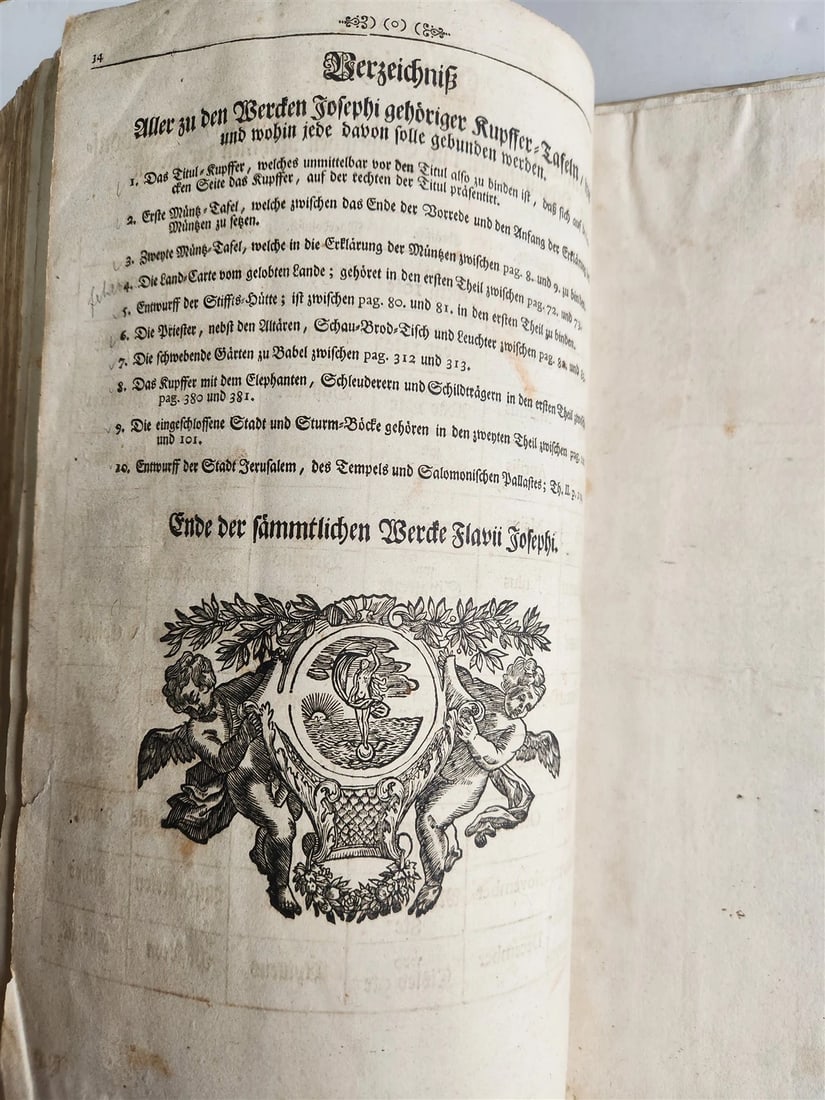 (o)
14
Verzeichniß
Aller zu den Wercken Josephi gehöriger Kupffer-Tafeln /
und wohin jede davon solle gebunden werden.
1. Das Titul-Kupffer, welches unmittelbar vor den Titul also zu binden ist, daß sich auf
cken Seite das Kupffer, auf der rechten der Titul präsentirt.
2. Erste Müntz-Tafel, welche zwischen das Ende der Vorrede und den Anfang der Erklärung
Müntzen zu setzen.
3. Zweyte Müntz-Tafel, welche in die Erklärung der Müntzen zwischen pag. 8. und 9. zu binden.
4. Die Land-Carte vom gelobten Lande; gehöret in den ersten Theil zwischen pag. 72. und 73.
5. Entwurff der Stiffts-Hütte; ist zwischen pag. 80. und 81. in den ersten Theil zu binden.
6. Die Priester, nebst den Altären, Schau-Brod-Tisch und Leuchter zwischen pag. und
7. Die schwebende Gärten zu Babel zwischen pag. 312 und 313.
8. Das Kupffer mit dem Elephanten, Schleuderern und Schildträgern in den ersten Theil
pag. 380 und 381.
9. Die eingeschlossene Stadt und Sturm-Böcke gehören in den zweyten Theil zwischen pag.
und 101.
10. Entwurff der Stadt Jerusalem, des Tempels und Salomonischen Pallastes; Th. II. p.
Ende der sämmtlichen Wercke Flavii Josephi.